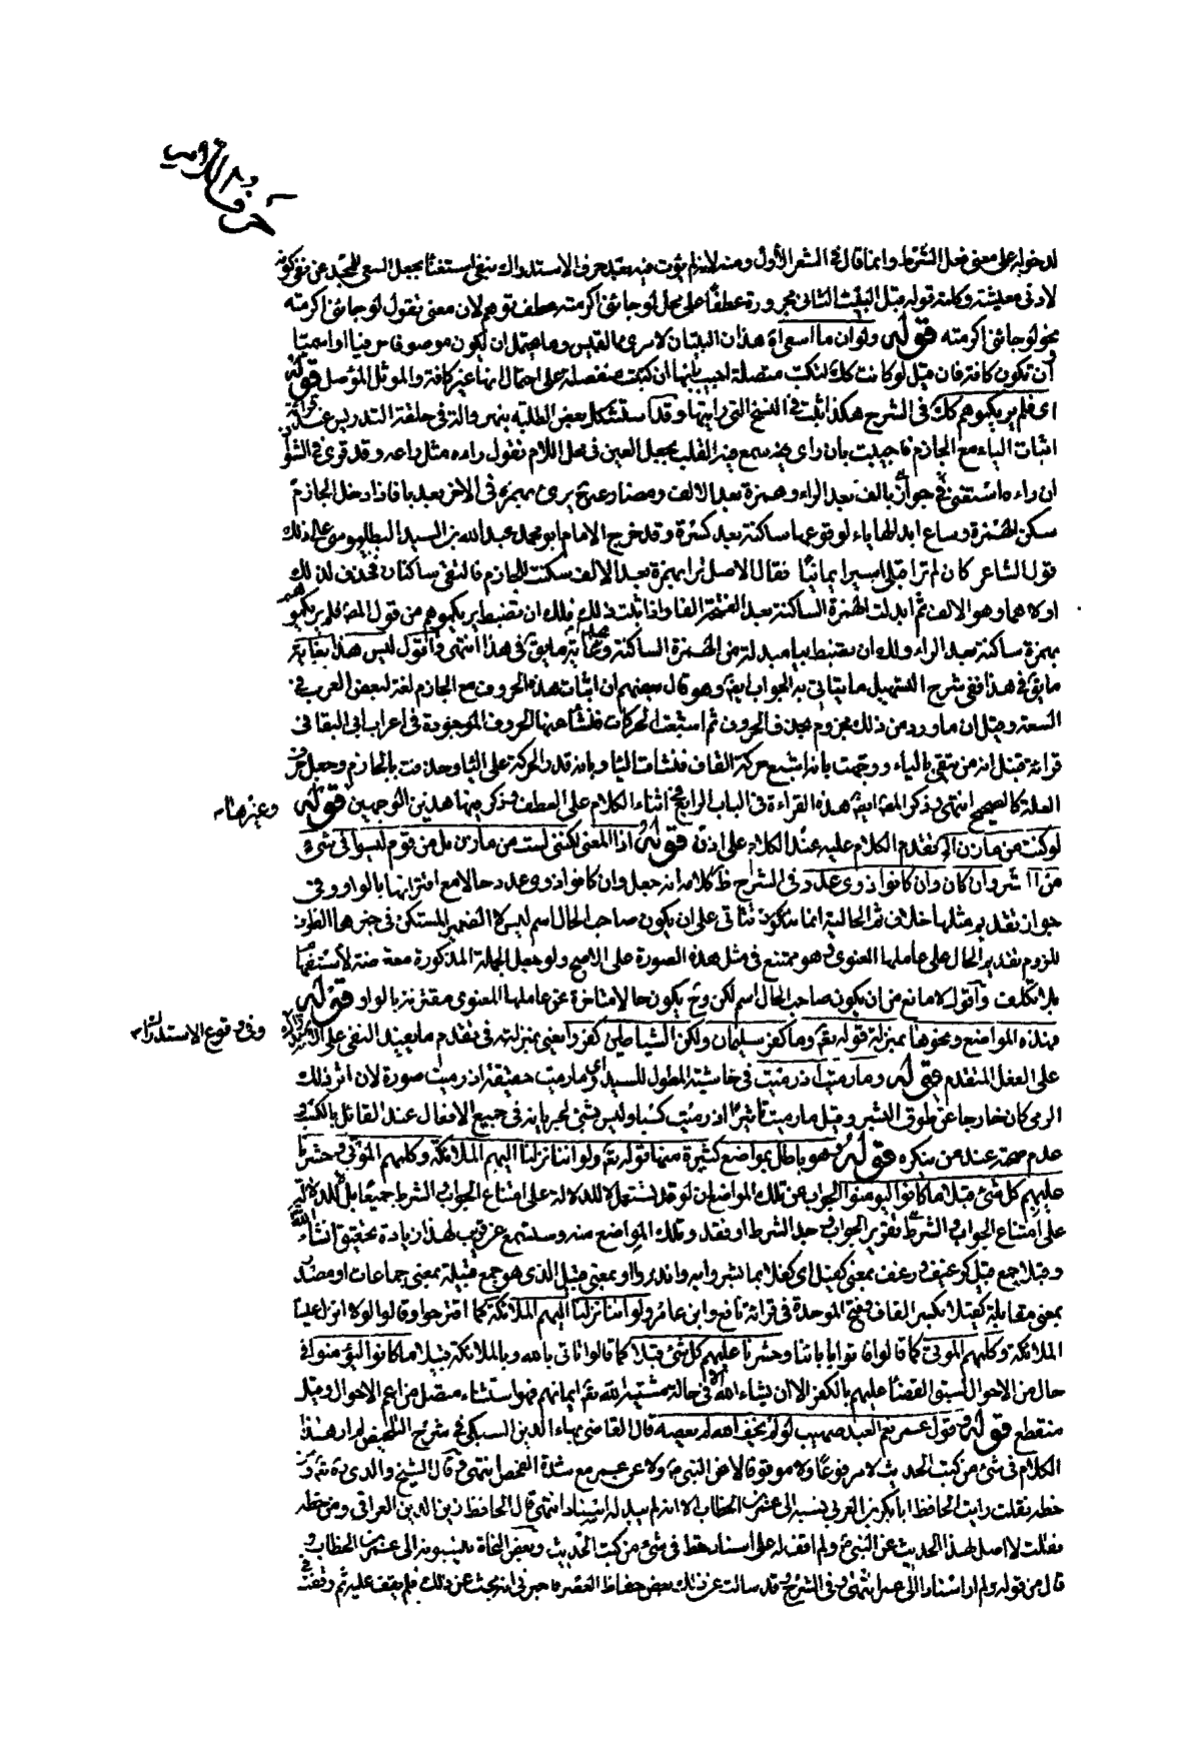 حرف اللام
لدخوله على معنى فعل الشرط وانما قال في الشعر الأول ومنه لانه لم يثبت فيه بعد حرف الاستدراك نفي استغناء بجعل السعي للمجد عن نفي كونه
لادنى معيشة وكلمة قوله قبل البيت الثاني مجرورة عطفا على محل لو جائني اكرمته عطف توهم لان معنى نقول لو جائني اكرمته
بنحو لو جائني اكرمته قوله ولو ان ما اسعى اه هذان البيتان لامرئ القيس وما يحتمل ان يكون موصولا حرفيا او اسميا
أن تكون كافة فان قيل لو كانت كك لكتبت متصلة اجيب بانها ان كتبت منفصلة على احتمال انها غير كافة والموثل المؤصل قوله
اى فلم يريكبوهم كك في الشرح هكذا ثبت في النسخ التي رايتها وقد استشكل بعض الطلبة بنهر والة في حلقة التدريس عند قرائة
اثبات الياء مع الجازم فاجيبت بان راى يرى سمع فيه القلب بجعل العين في محل اللام نقول راءه مثل راعه وقد قرئ في الشواذ
ان راءه استغنى في جواز بالف بعد الراء وهمزة بعد الالف ومضارعه يرئ بهمزة في الاخر بعد يا فاذا دخل الجازم
سكن الهمزة وساغ ابدالها ياء لوقوعها ساكنة بعد كسرة وقد خرج الامام ابو محمد عبد الله بن السيد البطليوسي على ذلك
قول الشاعر كان لم ترا قبلى اسيرا يمانيا فقال الاصل ترا بهمزة بعد الالف سكنت للجازم فالتقى ساكنان فحذف لذلك
اولاهما وهو الالف ثم ابدلت الهمزة الساكنة بعد الفتحة الفا واذا ثبت ذلك فلك ان تضبط يريكبوهم من قول المص فلم يريكبوهم
بهمزة ساكنة بعد الراء ولك ان تضبط بيا مبدلة من الهمزة الساكنة وغاية ما يقع في هذا انتهى واقول ليس هذا بغاية
ما يقع في هذا ففي شرح التسهيل ما يتاتى به الجواب ايضا وهو قال بعضهم ان اثبات هذه الحروف مع الجازم لغة لبعض العرب في
السعة وقيل ان ما ورد من ذلك مجزوم بحذف الحروف ثم اشبعت الحركات فنشأ عنها الحروف الموجودة في اعراب ابي البقا في
قرائة قنبل انه من يتقي بالياء ووجهت بانه اشبع حركة القاف فنشات اليا وبانه قدر الحركة على اليا وحذفت بالجازم وجعل حرف
العلة كالصحيح انتهى وذكر المص ايضا هذه القراءة في الباب الرابع في اثناء الكلام على العطف وذكر فيها هذين التوجيهين قوله
وغيرهما
لو كنت من مازن الخ تقدم الكلام عليه عند الكلام على اذن قوله اذ المعنى لكنني لست من مازن بل من قوم ليسوا في شيء
من الشر وان كان وان كانوا ذوى عدد في الشرح ظ كلامه انه جعل وان كانوا ذوى عدد حالا مع اقترانها بالواو وفي
جواز تقديم مثلها خلاف ثم الحالية انما تكون تتاتى على ان يكون صاحب الحال اسم ليس لا الضمير المستكن في خبرها الظرف
للزوم تقديم الحال على عاملها المعنوى وهو ممتنع في مثل هذه الصورة على الاصح ولو جعل الجملة المذكورة معترضة لاستغنى
بلا تكلف واقول لا مانع من ان يكون صاحب الحال اسم لكن وح يكون حالا متاخرة عن عاملها المعنوى مقترنة بالواو قوله
فهذه المواضع ونحوها بمنزلة قوله تع وما كفر سليمان ولكن الشياطين كفروا يعنى بمنزلته في تقدم ما يفيد النفي على
وفي وقوع الاستدراك
على الفعل المتقدم قوله وما رميت اذ رميت في حاشية المطول للسيد وما رميت حقيقة اذ رميت صورة لان اثر ذلك
الرمى كان خارجا عن طوق البشر وقيل ما رميت تاثيرا اذ رميت كسبا وليس بشئ لجريانه في جميع الافعال عند القائل بالكسب
عدم صحته عند من ينكره قوله وهو باطل بمواضع كثيرة منها قوله تع ولو اننا نزلنا اليهم الملائكة وكلمهم الموتى وحشرنا
عليهم كل شئ قبلا ما كانوا ليؤمنوا الجواب عن تلك المواضع ان لو قد تستعمل للدلالة على امتناع الجواب والشرط جميعا بل للدلالة
على امتناع الجواب والشرط تقرير الجواب وجد الشرط او فقد وتلك المواضع منه وستسمع عن قريب لهذا زيادة تحقيق انشاء الله
وقبلا جمع قبيل كرغيف ورغف بمعنى كفيل اى كفلا بما بشروا به وانذروا او بمعنى قبيل الذى هو جمع قبيلة بمعنى جماعات او مصدر
بمعنى مقابلة كقبلا بكسر القاف وفتح الموحدة في قرائة نافع وابن عامر ولو اننا نزلنا اليهم الملائكة كما اقترحوا وقالوا لولا انزل علينا
الملائكة وكلمهم الموتى كما قالوا فاتوا باباتنا وحشرنا عليهم كل شئ قبلا كما قالوا او تاتى بالله وبالملائكة قبيلا ما كانوا ليؤمنوا في
حال من الاحوال لسبق القضاء عليهم بالكفر الا ان يشاء الله الا في حالة مشيئة الله تع ايمانهم فهو استثناء متصل من اعم الاحوال وقيل
منقطع قوله وقول عمر نعم العبد صهيب لو لم يخف الله لم يعصه قال القاضى بهاء الدين السبكى في شرح التلخيص لم ار هذا
الكلام في شئ من كتب الحديث لا مرفوعا ولا موقوفا لا عن النبي ولا عن عمر مع شدة الفحص انتهى قال الشيخ والدى ومن
خطه نقلت رايت الحافظ ابا بكر بن العربى ينسبه الى عمر بن الخطاب الا انه لم يبد له اسنادا انتهى قال الحافظ زين الدين العراقى ومن خطه
نقلت لا اصل لهذا الحديث عن النبي ولم اقف له على اسناد قط في شئ من كتب الحديث وبعض النحاة ينسبونه الى عمر بن الخطاب
قال من قوله ولم ار اسنادا الى عمر انتهى وفي الشرح وقد سالت عن ذلك بعض حفاظ العصر فاخبرنى انه بحث عن ذلك فلم يقف عليه ثم وقفت